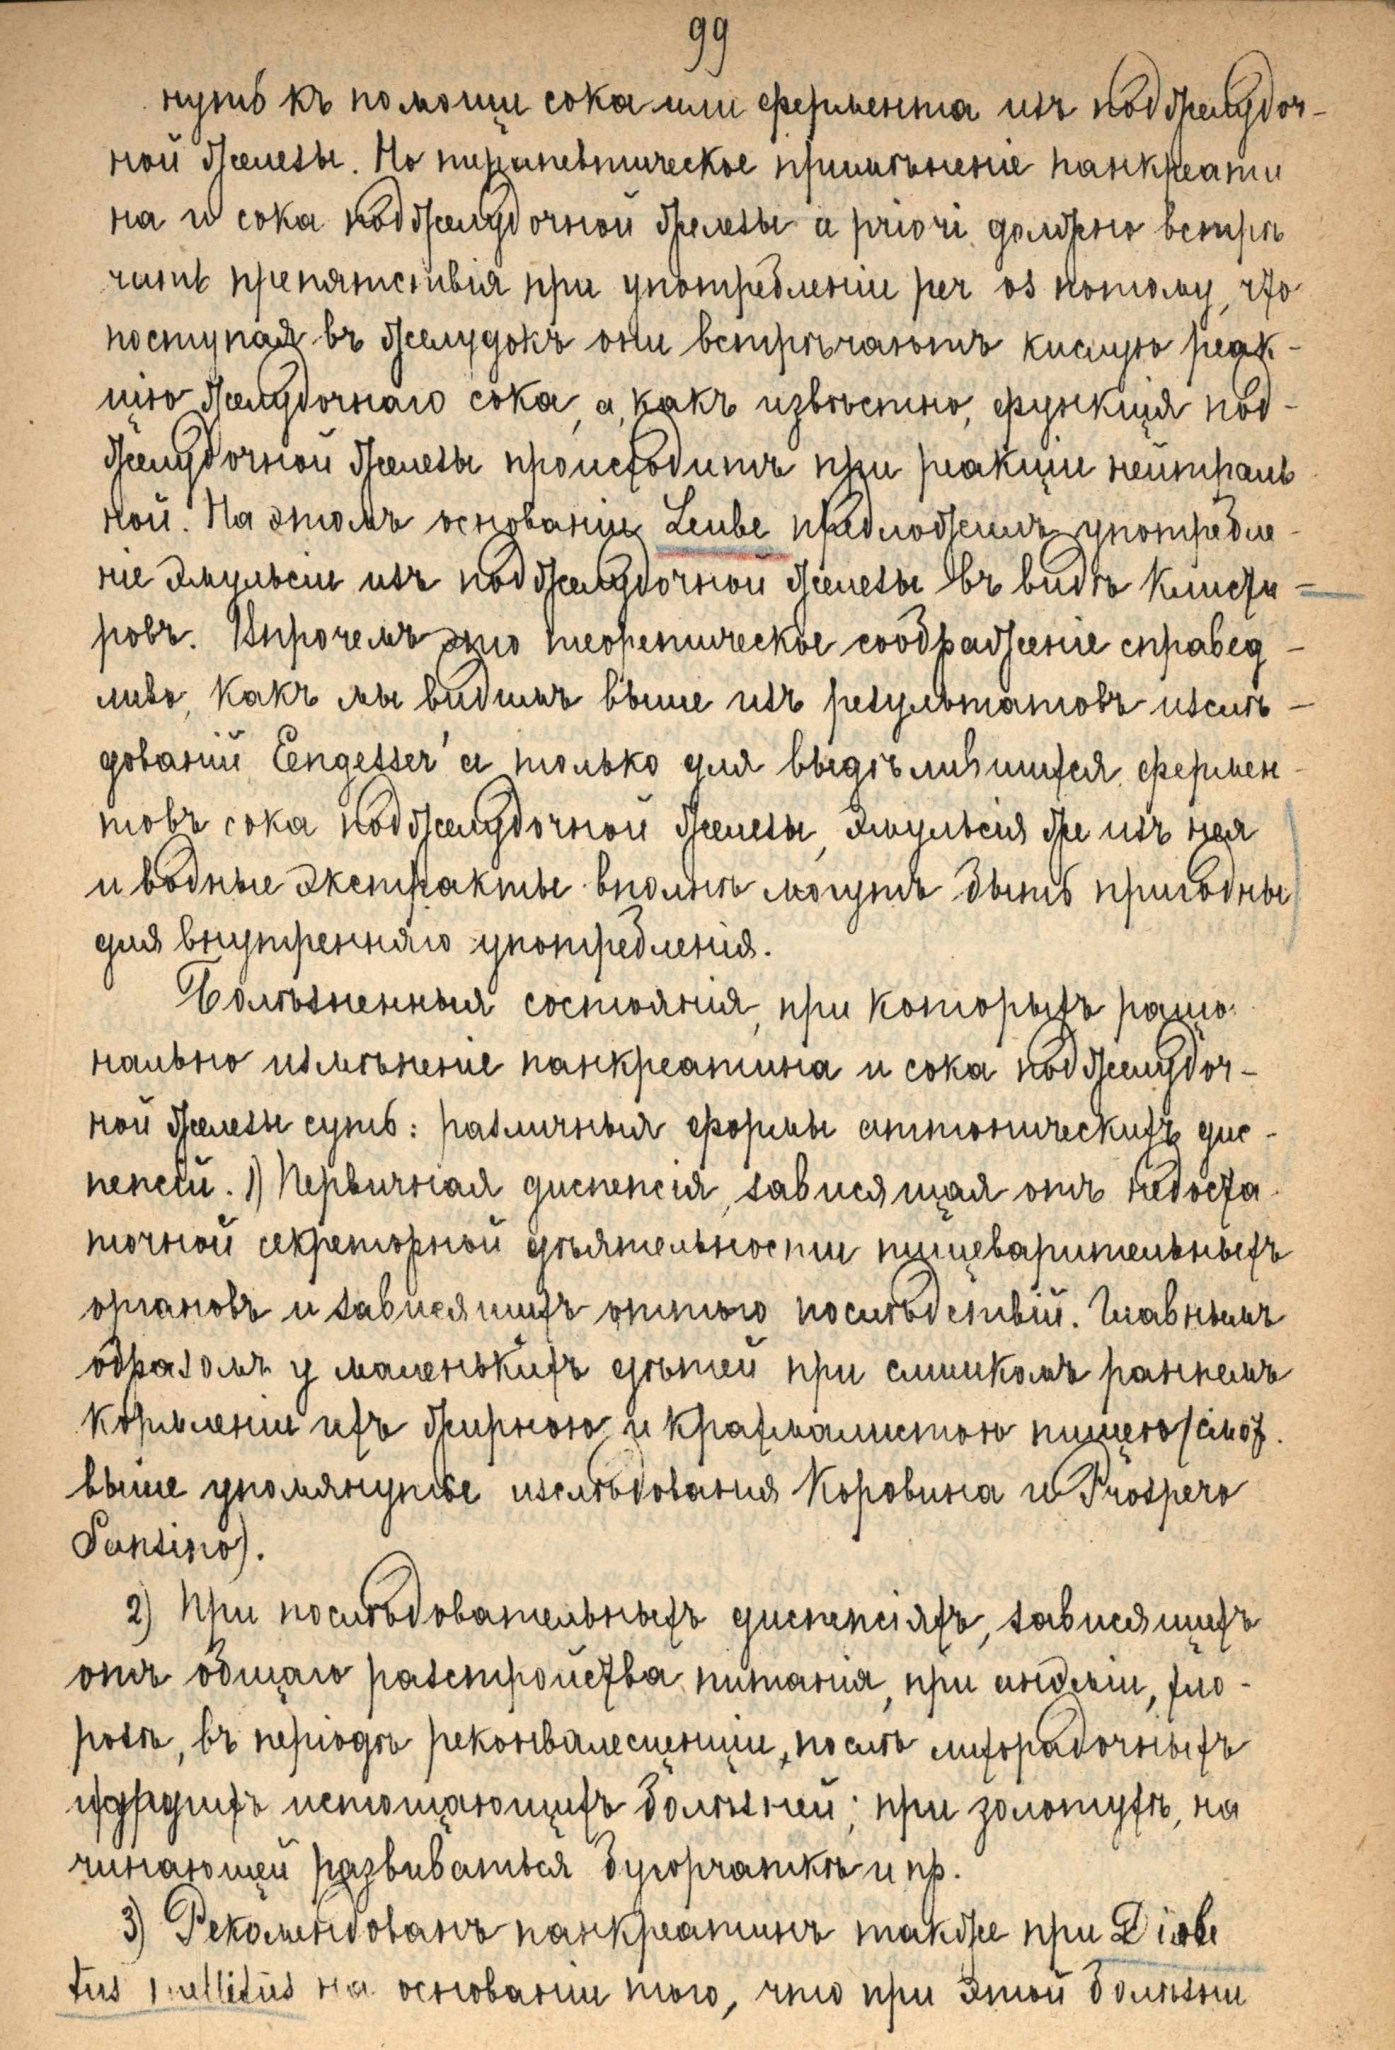 99
нуть къ помощи сока или фермента изъ поджелудоч-
ной железы. Но терапевтическое примѣненіе панкреати
на и сока поджелудочной железы a priori должно встрѣ
чать препятствія при употребленіи per os потому, что
поступая въ желудокъ они встрѣчаютъ кислую реак-
цію желудочнаго сока, а, какъ извѣстно, функція под-
желудочной железы происходитъ при реакціи нейтраль
ной. На этомъ основаніи Leube предложилъ употребле-
ніе эмульсіи изъ поджелудочной железы въ видѣ клисти-
ровъ. Впрочемъ это теоретическое соображеніе справед-
ливо, какъ мы видимъ выше изъ результатовъ изслѣ-
дованій Engesser'а только для выдѣлившихся фермен-
товъ сока поджелудочной железы, эмульсія же изъ нея
и водные экстракты вполнѣ могутъ быть пригодны
для внутренняго употребленія.
Болѣзненныя состоянія, при которыхъ раціо-
нально измѣненіе панкреатина и сока поджелудоч-
ной железы суть: различныя формы аттоническихъ дис-
пепсій. 1) Первичная диспепсія, зависящая отъ недоста-
точной секреторной дѣятельности пищеварительныхъ
органовъ и зависящихъ оттого послѣдствій. Главнымъ
образомъ у маленькихъ дѣтей при слишкомъ раннемъ
кормленіи ихъ жирною и крахмалистою пищею (смот.
выше упомянутые изслѣдованія Коровина и Prospero
Sonsino).
2) При послѣдовательныхъ диспепсіяхъ, зависящихъ
отъ общаго разстройства питанія, при анэміи, хло-
розѣ, въ періодѣ реконвалесценціи, послѣ лихорадочныхъ
и другихъ истощающихъ болѣзней; при золотухѣ, на
чинающей развиваться бугорчаткѣ и пр.
3) Рекомендованъ панкреатинъ также при Diabe
tus mellitus на основаніи того, что при этой болѣзни